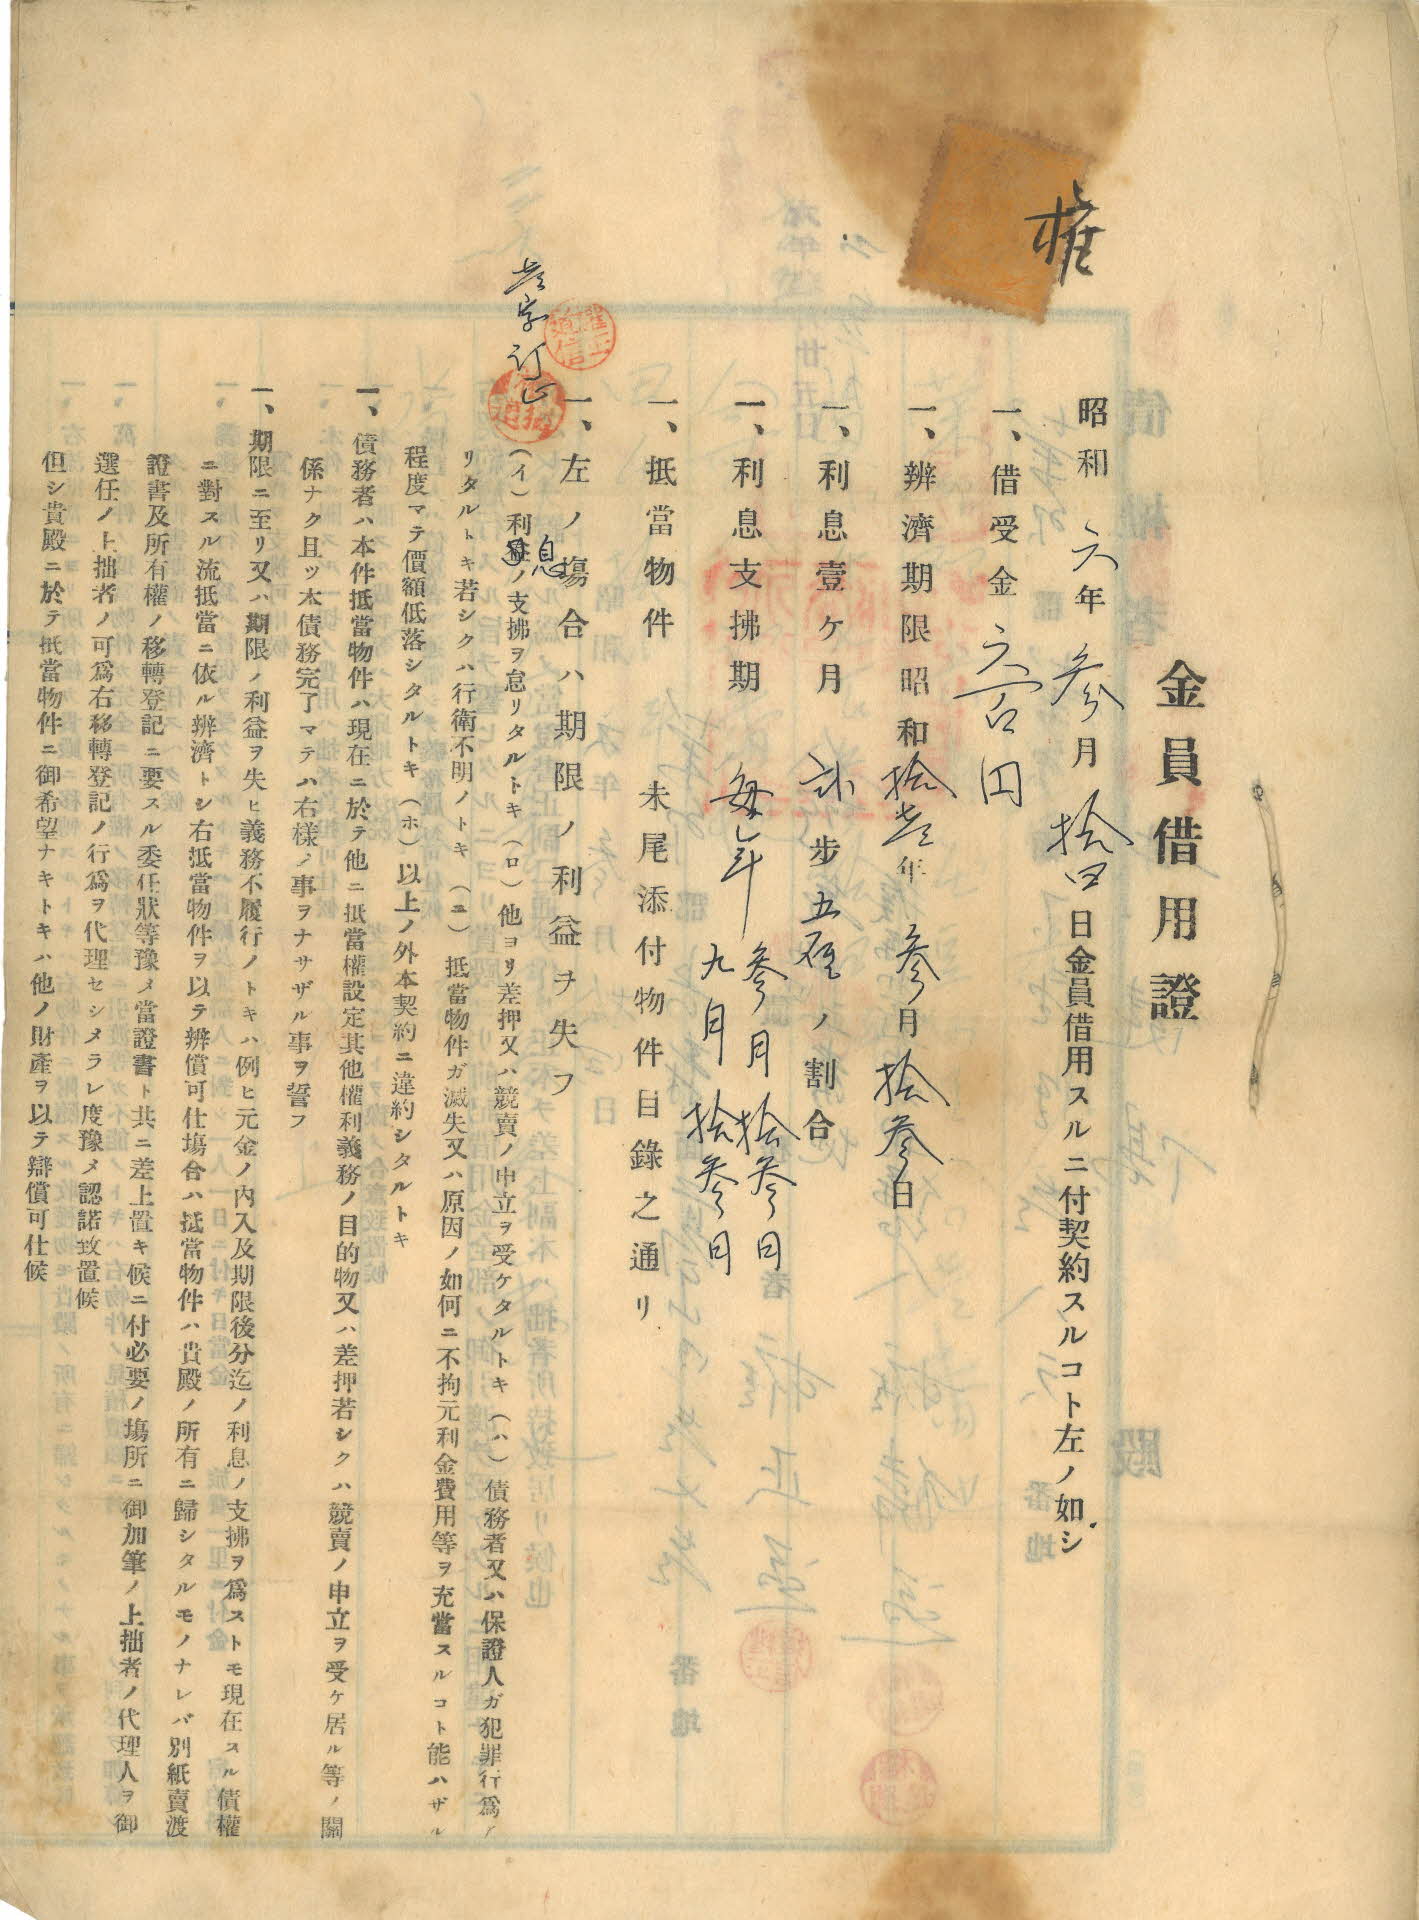 金員借用證
昭和六年參月拾四日金員借用スルニ付契約スルコト左ノ如シ
一、借受金六百円
一、辨濟期限昭和拾壹年參月拾參日
一、利息壹ケ月 步五厘ノ割合
一、利息支拂期每年參月拾參日
九月拾參日
一、抵當物件 末尾添付物件目錄之通リ
一、左ノ塲合ハ期限ノ利益ヲ失フ
壹字訂正
(イ)利息ノ支拂ヲ怠リタルトキ(ロ)他ヨリ差押又ハ競賣ノ申立ヲ受ケタルトキ(ハ)債務者又ハ保證人ガ犯罪行爲ア
リタルトキ若シクハ行衛不明ノトキ(ニ)抵當物件ガ滅失又ハ原因ノ如何ニ不拘元利金費用等ヲ充當スルコト能ハザル
程度マテ價額低落シタルトキ(ホ)以上ノ外本契約ニ違約シタルトキ
一、債務者ハ本件抵當物件ハ現在ニ於テ他ニ抵當權設定其他權利義務ノ目的物又ハ差押若シクハ競賣ノ申立ヲ受ケ居ル等ノ關
係ナク且ツ本債務完了マテハ右樣ノ事ヲナサザル事ヲ誓フ
一、期限ニ至リ又ハ期限ノ利益ヲ失ヒ義務不履行ノトキハ例ヒ元金ノ內入及期限後分迄ノ利息ノ支拂ヲ爲ストモ現在スル債權
ニ對スル流抵當ニ依ル辨濟トシ右抵當物件ヲ以テ辨償可仕塲合ハ抵當物件ハ貴殿ノ所有ニ歸シタルモノナレバ別紙賣渡
證書及所有權ノ移轉登記ニ要スル委任狀等豫メ當證書ト共ニ差上置キ候ニ付必要ノ塲所ニ御加筆ノ上拙者ノ代理人ヲ御
選任ノ上拙者ノ可爲右移轉登記ノ行爲ヲ代理セシメラレ度豫メ認諾致置候
但シ貴殿ニ於テ抵當物件ニ御希望ナキトキハ他ノ財產ヲ以テ辯償可仕候